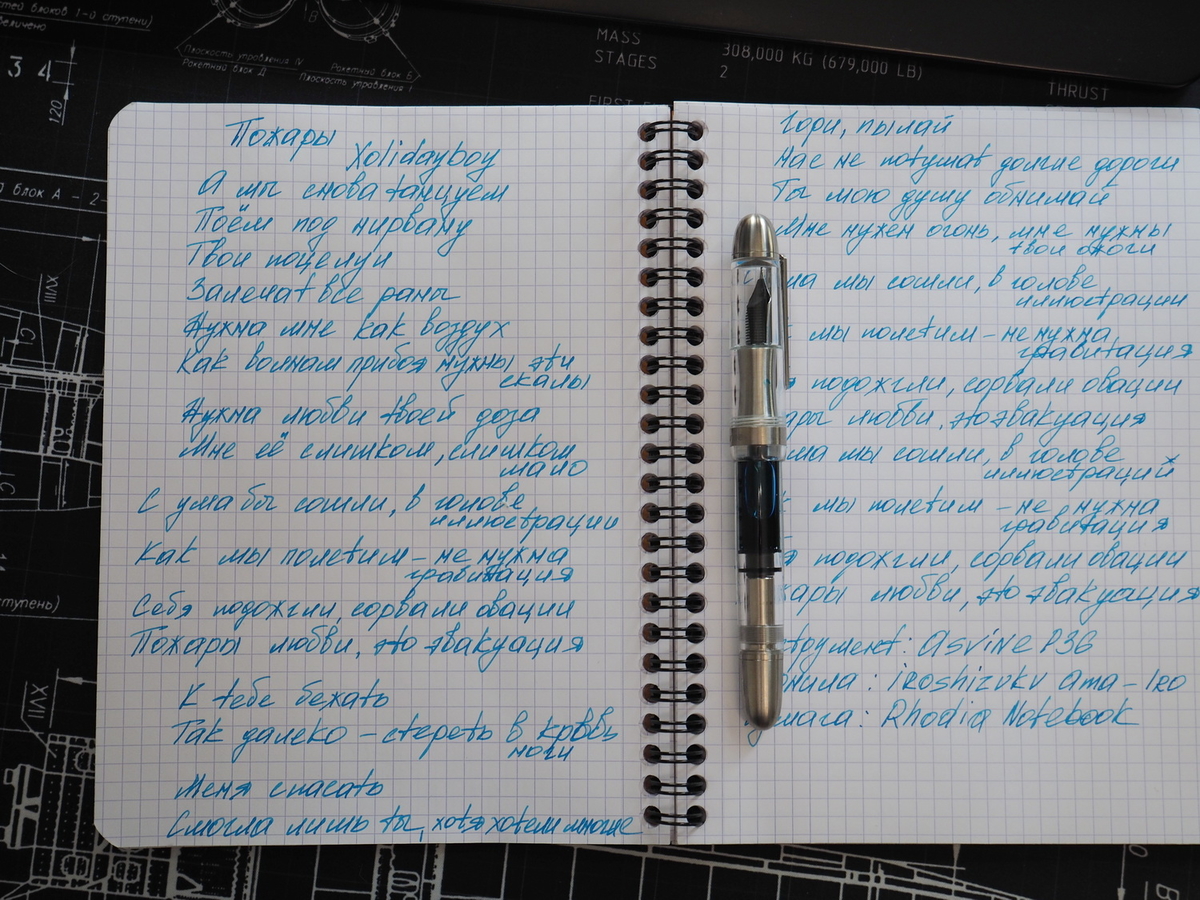 стей блоков 1-о ступени)
величено
Плоскость управления IV
Ракетный блок Д
Ракетный блок Б
Плоскость управления I
MASS 308,000 KG (679,000 LB)
STAGES 2
THRUST
3 4
120
блок А - 2-
XVIII
ступень)
XVII
Пожары
Xolidayboy
А мы снова танцуем
Поём под нирвану
Твои поцелуи
Залечат все раны
Нужна мне как воздух
Как волнам прибоя нужны эти
скалы
Нужна любви твоей доза
Мне её слишком, слишком
мало
С ума бы сошли, в голове
иллюстрации
Как мы полетим – не нужна
гравитация
Себя подожгли, сорвали овации
Пожары любви, это эвакуация
К тебе бежать
Так далеко – стереть в кровь
ноги
Меня спасать
Смогла лишь ты, хотя хотели многие
Гори, пылай
Нас не потушат долгие дороги
Ты мою душу обнимай
Мне нужен огонь, мне нужны
твои ожоги
ма мы сошли, в голове
иллюстрации
мы полетим – не нужна
гравитация
я подожгли, сорвали овации
ары любви, это эвакуация
ма мы сошли, в голове
иллюстраций
мы полетим – не нужна
гравитация
я подожгли, сорвали овации
жары любви, это эвакуация
трумент: Asvine P36
нила: Iroshizuku ama-iro
мага: Rhodia Notebook